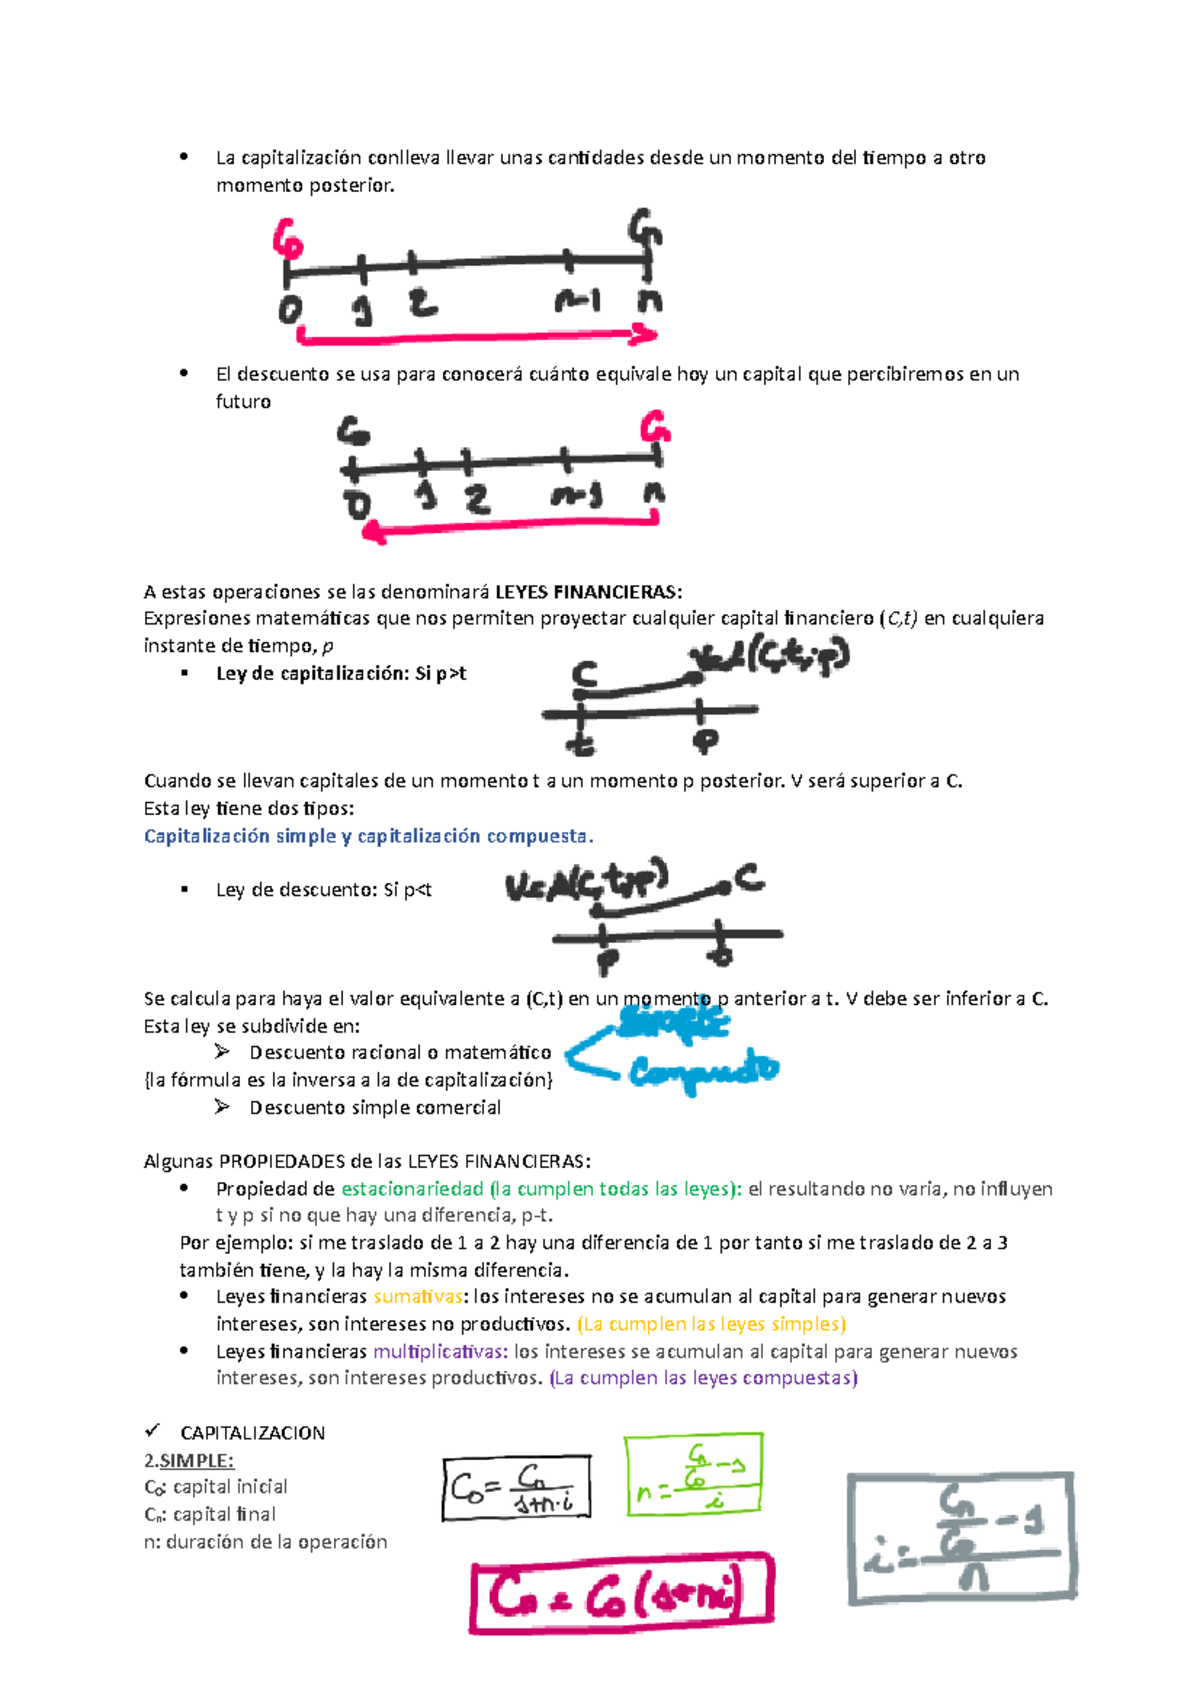 • La capitalización conlleva llevar unas cantidades desde un momento del tiempo a otro
momento posterior.
C₀ Cₙ
0 1 2 n-1 n
• El descuento se usa para conocerá cuánto equivale hoy un capital que percibiremos en un
futuro
C₀ Cₙ
0 1 2 n-1 n
A estas operaciones se las denominará LEYES FINANCIERAS:
Expresiones matemáticas que nos permiten proyectar cualquier capital financiero (C,t) en cualquiera
instante de tiempo, p
▪ Ley de capitalización: Si p>t
C (C,t,p)
t p
Cuando se llevan capitales de un momento t a un momento p posterior. V será superior a C.
Esta ley tiene dos tipos:
Capitalización simple y capitalización compuesta.
▪ Ley de descuento: Si p<t
(C,t,p) C
p t
Se calcula para haya el valor equivalente a (C,t) en un momento p anterior a t. V debe ser inferior a C.
Esta ley se subdivide en:
simple
➢ Descuento racional o matemático
compuesto
{la fórmula es la inversa a la de capitalización}
➢ Descuento simple comercial
Algunas PROPIEDADES de las LEYES FINANCIERAS:
• Propiedad de estacionariedad (la cumplen todas las leyes): el resultando no varia, no influyen
t y p si no que hay una diferencia, p-t.
Por ejemplo: si me traslado de 1 a 2 hay una diferencia de 1 por tanto si me traslado de 2 a 3
también tiene, y la hay la misma diferencia.
• Leyes financieras sumativas: los intereses no se acumulan al capital para generar nuevos
intereses, son intereses no productivos. (La cumplen las leyes simples)
• Leyes financieras multiplicativas: los intereses se acumulan al capital para generar nuevos
intereses, son intereses productivos. (La cumplen las leyes compuestas)
✓ CAPITALIZACION
2.SIMPLE:
C₀: capital inicial
Cₙ: capital final
n: duración de la operación
C₀ = Cₙ / 1+n·i
n = (Cₙ/C₀ - 1) / i
i = (Cₙ/C₀ - 1) / n
Cₙ = C₀ (1+ni)